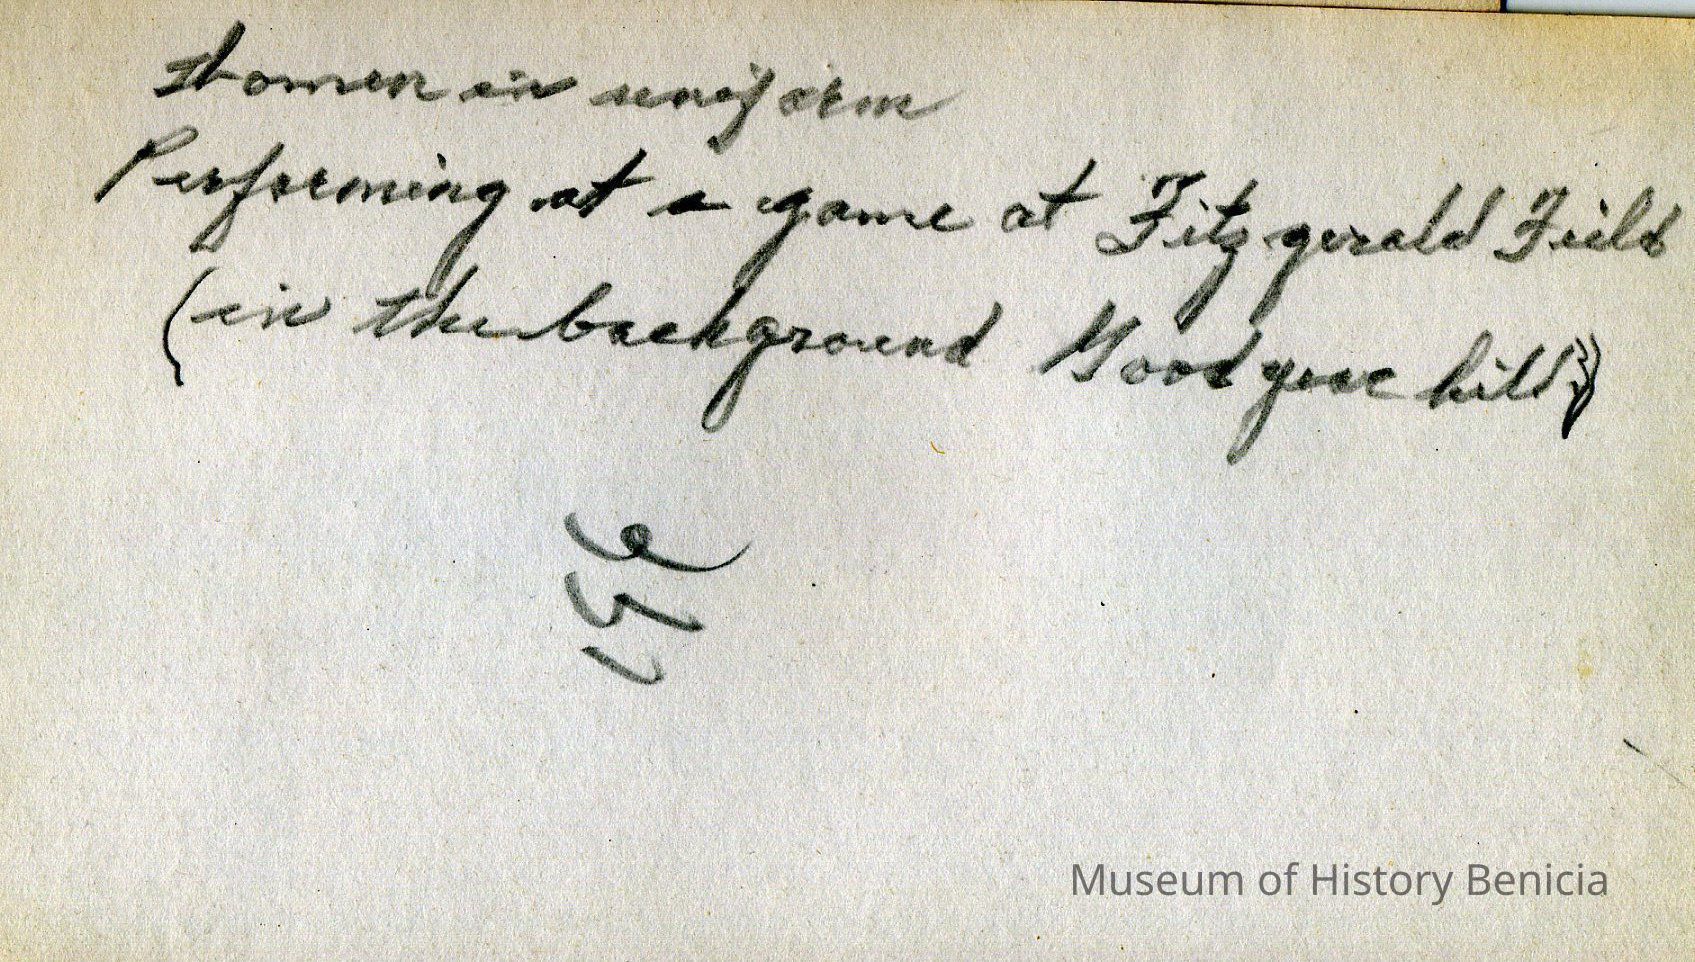 Women in uniform
Performing at a game at Fitzgerald Field
(in the background Goodyear hills)
Museum of History Benicia